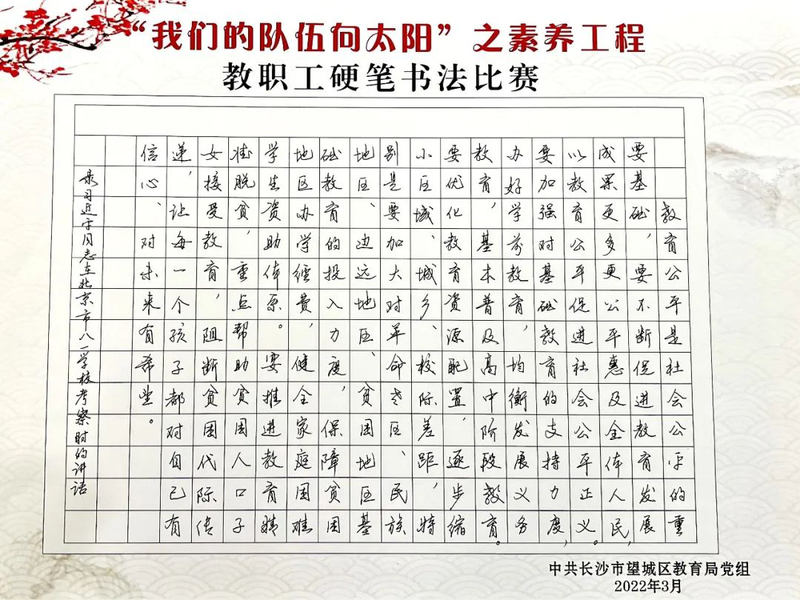 “我们的队伍向太阳”之素养工程
教职工硬笔书法比赛
教育公平是社会公平的重
要基础，要不断促进教育发展
成果更多更公平惠及全体人民，
以教育公平促进社会公平正义。
要加强对基础教育的支持力度，
办好学前教育，均衡发展义务
教育，基本普及高中阶段教育。
要优化教育资源配置，逐步缩
小区域、城乡、校际差距，特
别是要加大对革命老区、民族
地区、边远地区、贫困地区基
础教育的投入力度，保障贫困
地区办学经费，健全家庭困难
学生资助体系。要推进教育精
准脱贫，重点帮助贫困人口子
女接受教育，阻断贫困代际传
递，让每一个孩子都对自己有
信心、对未来有希望。
录习近平同志在北京市八一学校考察时的讲话
中共长沙市望城区教育局党组
2022年3月